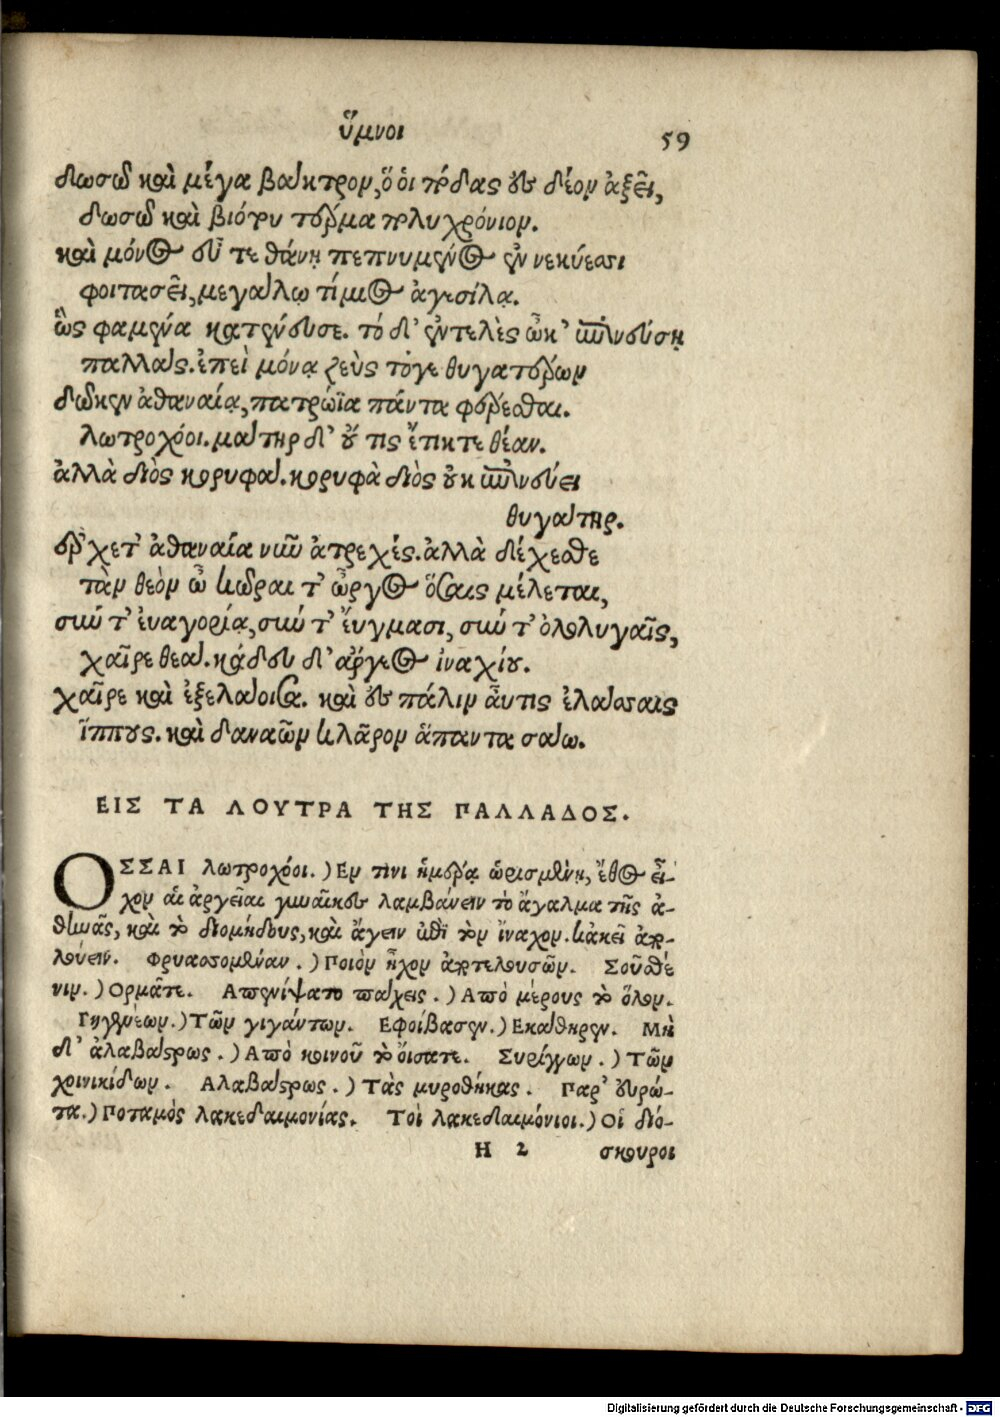 ὕμνοι 59
δωσῶ καὶ μέγα βάκτρον, ὅ οἱ πόδας ἐς δέον ἀξεῖ,
δωσῶ καὶ βιότου τέρμα πολυχρόνιον.
καὶ μόνος εὖ τε θάνῃ πεπνυμένος ἐν νεκύεσσι
φοιτασεῖ, μεγάλῳ τίμιος ἀγεσίλᾳ.
ὣς φαμένα κατένευσε. τό δ' ἐντελὲς ᾧ κ' ἐπινεύσῃ
παλλάς. ἐπεὶ μόνᾳ ζεὺς τόγε θυγατέρων
δῶκεν ἀθαναίᾳ, πατρώϊα πάντα φέρεσθαι.
λωτροχόοι. μάτηρ δ' οὔ τις ἔτικτε θέαν.
ἀλλὰ διὸς κορυφά. κορυφὰ διὸς οὐκ ἐπινεύει
θυγάτηρ.
ἔρχετ' ἀθαναία νῦν ἀτρεχές. ἀλλὰ δέχεσθε
τὰν θεὸν ὦ κῶραι τ' ὦργος ὅσαις μέλεται,
σύν τ' ἐναγορίᾳ, σύν τ' ἔυγμασι, σύν τ' ὀλολυγαῖς,
χαῖρε θεά. κάδευ δ' ἄργεος ἰναχίου.
χαῖρε καὶ ἐξελάοισα. καὶ ἐς πάλιν αὖτις ἐλάσσαις
ἵππους. καὶ δαναῶν κλᾶρον ἅπαντα σάω.
ΕΙΣ ΤΑ ΛΟΥΤΡΑ ΤΗΣ ΠΑΛΛΑΔΟΣ.
ΟΣΣΑΙ λωτροχόοι.) Εν τινι ἡμέρᾳ ὡρισμένῃ, ἔθος εἶ-
χον αἱ ἀργεῖαι γυναῖκες λαμβάνειν τὸ ἄγαλμα τῆς ἀ-
θηνᾶς, καὶ τὸ διομήδους, καὶ ἄγειν ἐπὶ τὸν ἴναχον. κἀκεῖ ἀπο-
λούειν. Φρυασσομέναν.) Ποιὸν ἦχον ἀποτελουσῶν. Σοῦσθέ
νιν.) Ορμᾶτε. Απενίψατο πάχεις.) Απὸ μέρους τὸ ὅλον.
Γηγενέων.) Τῶν γιγάντων. Εφοίβασεν.) Εκάθηρεν. Μὴ
δ' ἀλαβάστρως.) Απὸ κοινοῦ τὸ ὄισατε. Συρίγγων.) Τῶν
χοινικίδων. Αλαβάστρως.) Τὰς μυροθήκας. Παρ' ευρώ-
τα.) Ποταμὸς λακεδαιμονίας. Τοὶ λακεδαιμόνιοι.) Οἱ διό-
H 2 σκουροι
Digitalisierung gefördert durch die Deutsche Forschungsgemeinschaft - DFG